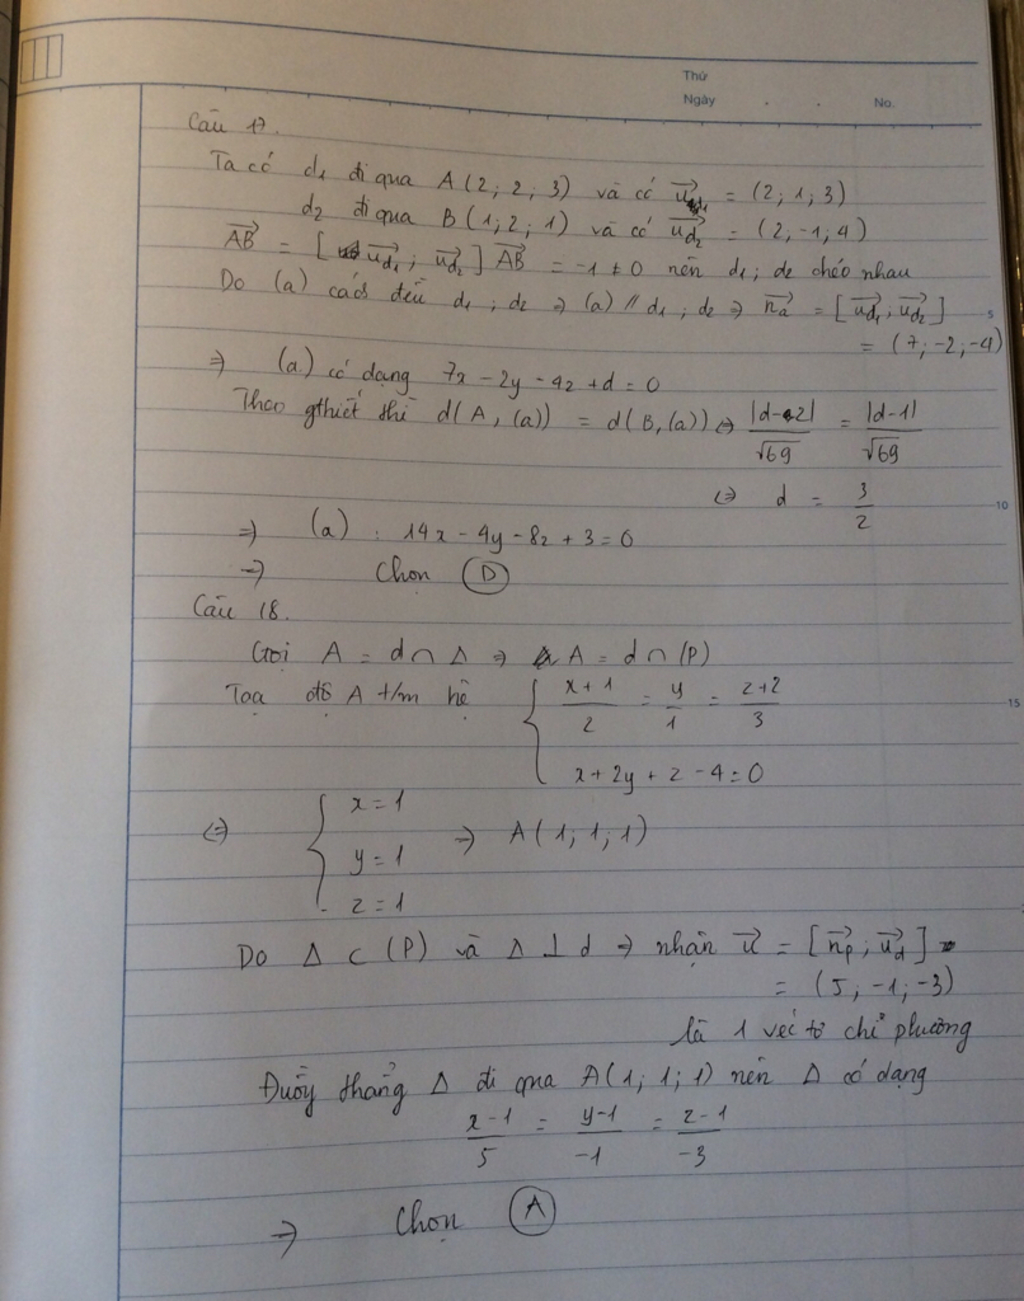 Thứ
Ngày . . No.
Câu 17.
Ta có d₁ đi qua A(2; 2; 3) và có u⃗d₁ = (2; 1; 3)
d₂ đi qua B(1; 2; 1) và có u⃗d₂ = (2; -1; 4)
A⃗B = [u⃗d₁; u⃗d₂] A⃗B = -1 ≠ 0 nên d₁; d₂ chéo nhau
Do (a) cách đều d₁; d₂ ⇒ (a) // d₁; d₂ ⇒ n⃗a = [u⃗d₁; u⃗d₂]
5
= (7; -2; -4)
⇒ (a) có dạng 7x - 2y - 4z + d = 0
Theo gthiết thì d(A, (a)) = d(B, (a)) ⇔ |d-2|/√69 = |d-1|/√69
⇔ d = 3/2
10
⇒ (a) : 14x - 4y - 8z + 3 = 0
⇒ Chọn D
Câu 18.
Gọi A = d ∩ Δ ⇒ A = d ∩ (P)
Toạ độ A t/m hệ { x+1/2 = y/1 = z+2/3
15
x + 2y + z - 4 = 0
⇔ { x = 1
y = 1 ⇒ A(1; 1; 1)
z = 1
Do Δ ⊂ (P) và Δ ⊥ d ⇒ nhận u⃗ = [n⃗p; u⃗d]
= (5; -1; -3)
là 1 véc tơ chỉ phương
Đường thẳng Δ đi qua A(1; 1; 1) nên Δ có dạng
x-1/5 = y-1/-1 = z-1/-3
⇒ Chọn A